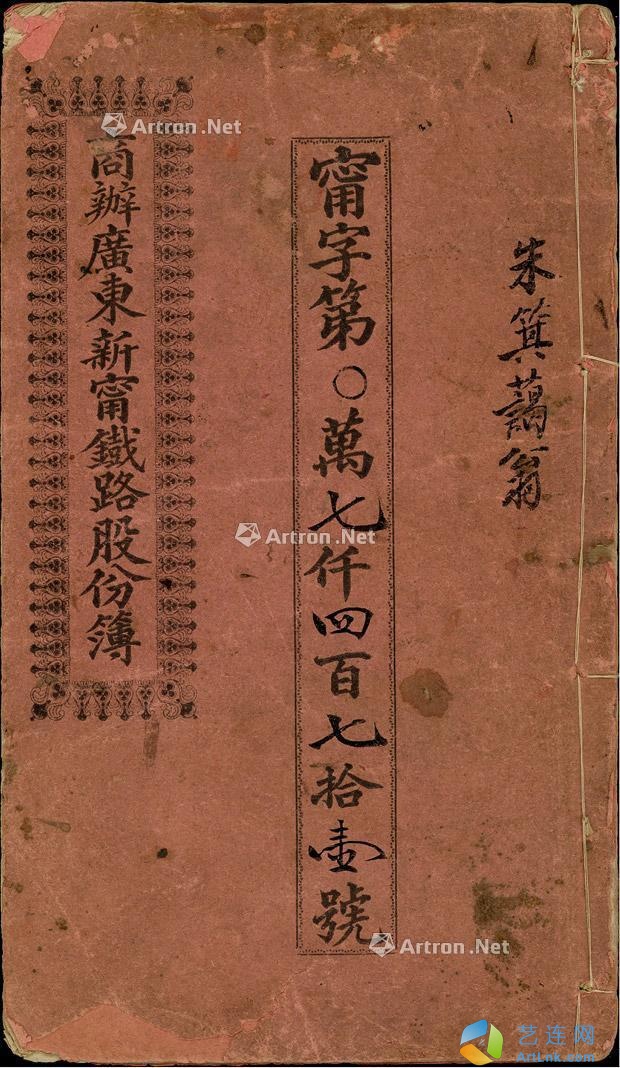 朱箕藹翁
甯字第○萬七仟四百七拾壹號
商辦廣東新甯鐵路股份簿
Artron.Net
Artron.Net
Artron.Net
艺连网
ArtLnk.Com